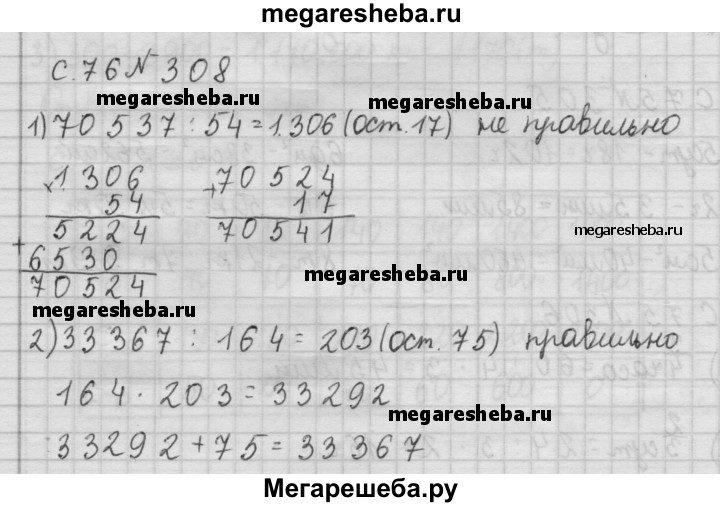 megaresheba.ru
с. 76 № 308
megaresheba.ru
megaresheba.ru
1) 70 537 : 54 = 1 306 (ост. 17) не правильно
× 1 306
54
5 2 2 4
+ 6 5 3 0
7 0 5 2 4
+ 70 5 2 4
1 7
7 0 5 4 1
megaresheba.ru
megaresheba.ru
megaresheba.ru
2) 33 367 : 164 = 203 (ост. 75) правильно
164 · 203 = 33292
megaresheba.ru
33292 + 75 = 33367
Мегарешеба.ру